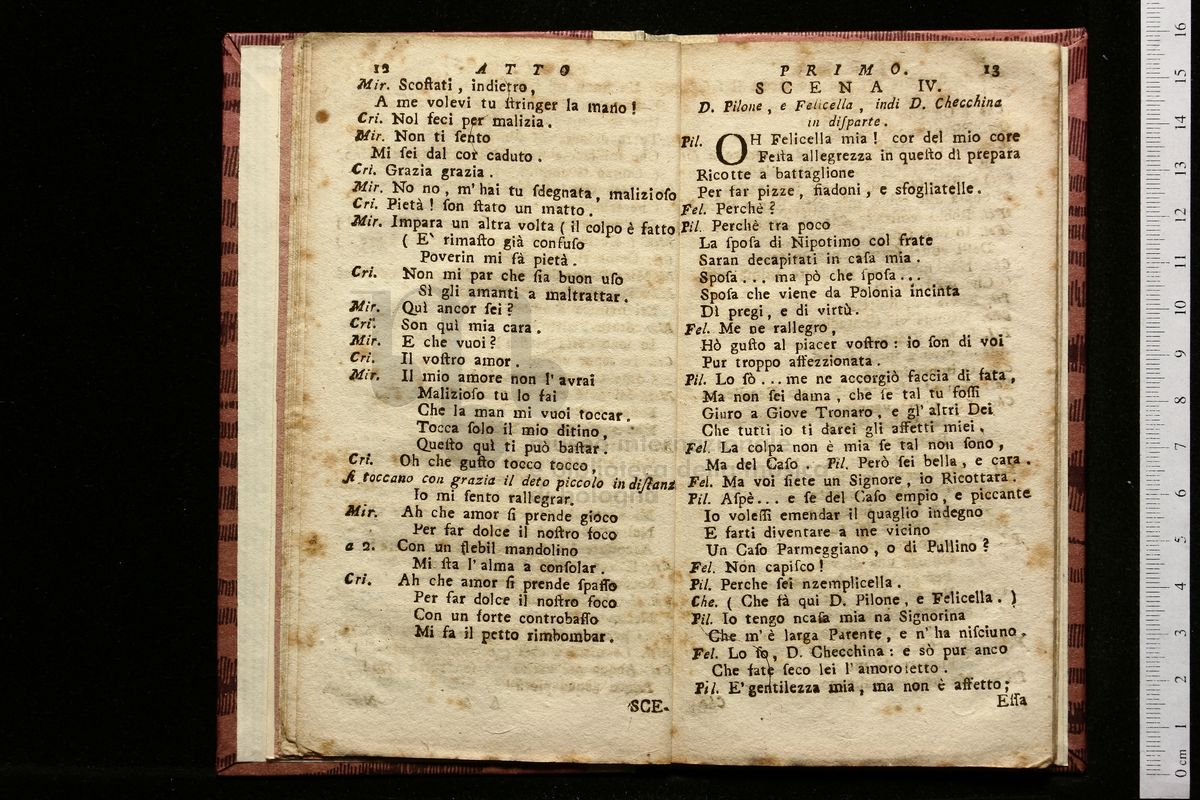 12 ATTO
Mir. Scoſtati, indietro,
A me volevi tu ſtringer la mano!
Cri. Nol feci per malizia.
Mir. Non ti ſento
Mi ſei dal cor caduto.
Cri. Grazia grazia.
Mir. No no, m'hai tu ſdegnata, malizioſo
Cri. Pietà! ſon ſtato un matto.
Mir. Impara un altra volta (il colpo è fatto
( E` rimaſto già confuſo
Poverin mi fà pietà.
Cri. Non mi par che ſia buon uſo
Sì gli amanti a maltrattar.
Mir. Quì ancor ſei?
Cri. Son quì mia cara.
Mir. E che vuoi?
Cri. Il voſtro amor.
Mir. Il mio amore non l'avrai
Malizioſo tu lo fai
Che la man mi vuoi toccar.
Tocca ſolo il mio ditino,
Queſto quì ti può baſtar.
Cri. Oh che guſto tocco tocco,
ſi toccano con grazia il deto piccolo in diſtanz
Io mi ſento rallegrar.
Mir. Ah che amor ſi prende gioco
Per far dolce il noſtro foco
a 2. Con un flebil mandolino
Mi ſta l'alma a conſolar.
Cri. Ah che amor ſi prende ſpaſſo
Per far dolce il noſtro foco
Con un forte controbaſſo
Mi fa il petto rimbombar.
SCE-
PRIMO. 13
SCENA IV.
D. Pilone, e Felicella, indi D. Checchina
in diſparte.
Pil. OH Felicella mia! cor del mio core
Feſta allegrezza in queſto dì prepara
Ricotte a battaglione
Per far pizze, fiadoni, e sfogliatelle.
Fel. Perchè?
Pil. Perchè tra poco
La ſpoſa di Nipotimo col frate
Saran decapitati in caſa mia.
Spoſa... ma pò che ſpoſa...
Spoſa che viene da Polonia incinta
Dì pregi, e di virtù.
Fel. Me ne rallegro,
Hò guſto al piacer voſtro: io ſon di voi
Pur troppo affezzionata.
Pil. Lo ſò... me ne accorgiò faccia di fata,
Ma non ſei dama, che ſe tal tu foſſi
Giuro a Giove Tronaro, e gl'altri Dei
Che tutti io ti darei gli affetti miei.
Fel. La colpa non è mia ſe tal non ſono,
Ma del Caſo. Pil. Però ſei bella, e cara.
Fel. Ma voi ſiete un Signore, io Ricottara.
Pil. Aſpè... e ſe del Caſo empio, e piccante
Io voleſſi emendar il quaglio indegno
E farti diventare a me vicino
Un Caſo Parmeggiano, o di Pullino?
Fel. Non capiſco!
Pil. Perche ſei nzemplicella.
Che. ( Che fà qui D. Pilone, e Felicella. )
Pil. Io tengo ncaſa mia na Signorina
Che m'è larga Parente, e n'ha niſciuno.
Fel. Lo ſo, D. Checchina: e sò pur anco
Che fate ſeco lei l'amoroſetto.
Pil. E' gentilezza mia, ma non è affetto;
Eſſa